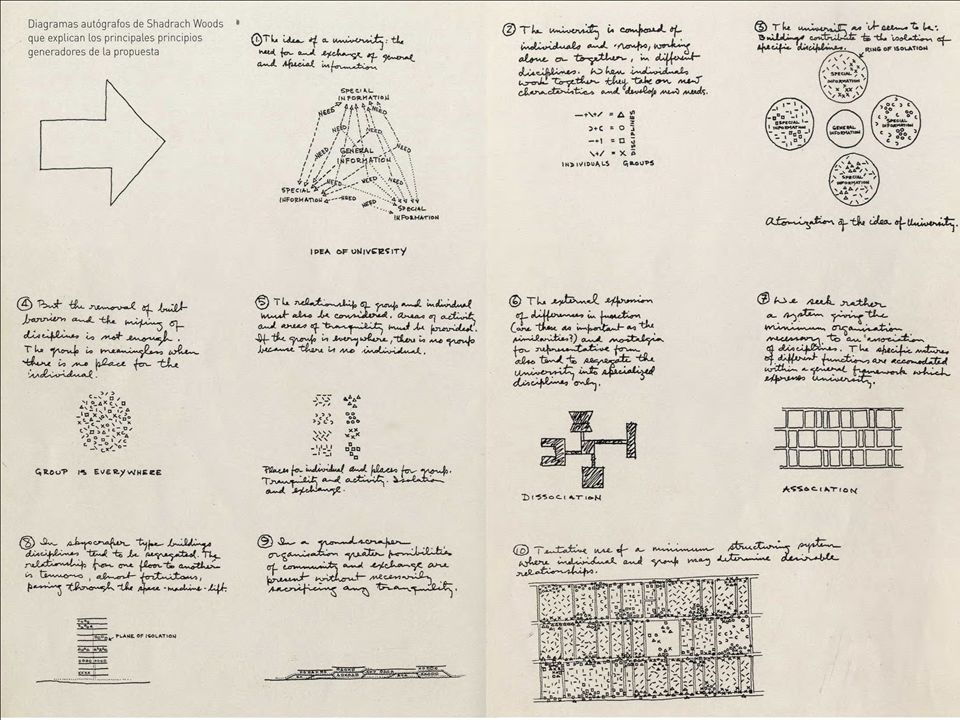 Diagramas autógrafos de Shadrach Woods
que explican los principales principios
generadores de la propuesta
① The idea of a university: the
need for and exchange of general
and special information
SPECIAL
INFORMATION
NEED
NEED
NEED
NEED
NEED
GENERAL
INFORMATION
NEED
NEED
NEED
NEED
NEED
NEED
SPECIAL
INFORMATION
SPECIAL
INFORMATION
IDEA OF UNIVERSITY
② The university is composed of
individuals and groups, working
alone or together, in different
disciplines. When individuals
work together they take on new
characteristics and develop new needs.
DISCIPLINES
INDIVIDUALS GROUPS
③ The university as it seems to be:
Buildings contribute to the isolation of
specific disciplines.
RING OF ISOLATION
SPECIAL
INFORMATION
SPECIAL
INFORMATION
GENERAL
INFORMATION
SPECIAL
INFORMATION
SPECIAL
INFORMATION
Atomization of the idea of University.
④ But the removal of built
barriers and the mixing of
disciplines is not enough.
The group is meaningless when
there is no place for the
individual.
GROUP IS EVERYWHERE
⑤ The relationship of group and individual
must also be considered. Areas of activity
and areas of tranquility must be provided.
If the group is everywhere, there is no group
because there is no individual.
Places for individual and places for group.
Tranquility and activity. Isolation
and exchange.
⑥ The external expression
of differences in function
(are these as important as the
similarities?) and nostalgia
for representative form
also tend to segregate the
University into specialized
disciplines only.
DISSOCIATION
⑦ We seek rather
a system giving the
minimum organisation
necessary to an association
of disciplines. The specific natures
of different functions are accomodated
within a general framework which
expresses university.
ASSOCIATION
⑧ In skyscraper type buildings
disciplines tend to be segregated. The
relationship from one floor to another
is tenuous, almost fortuitous,
passing through the space-machine-lift.
PLANE OF ISOLATION
⑨ In a groundscraper
organisation greater possibilities
of community and exchange are
present without necessarily
sacrificing any tranquility.
⑩ Tentative use of a minimum structuring system
where individual and group may determine desirable
relationships.